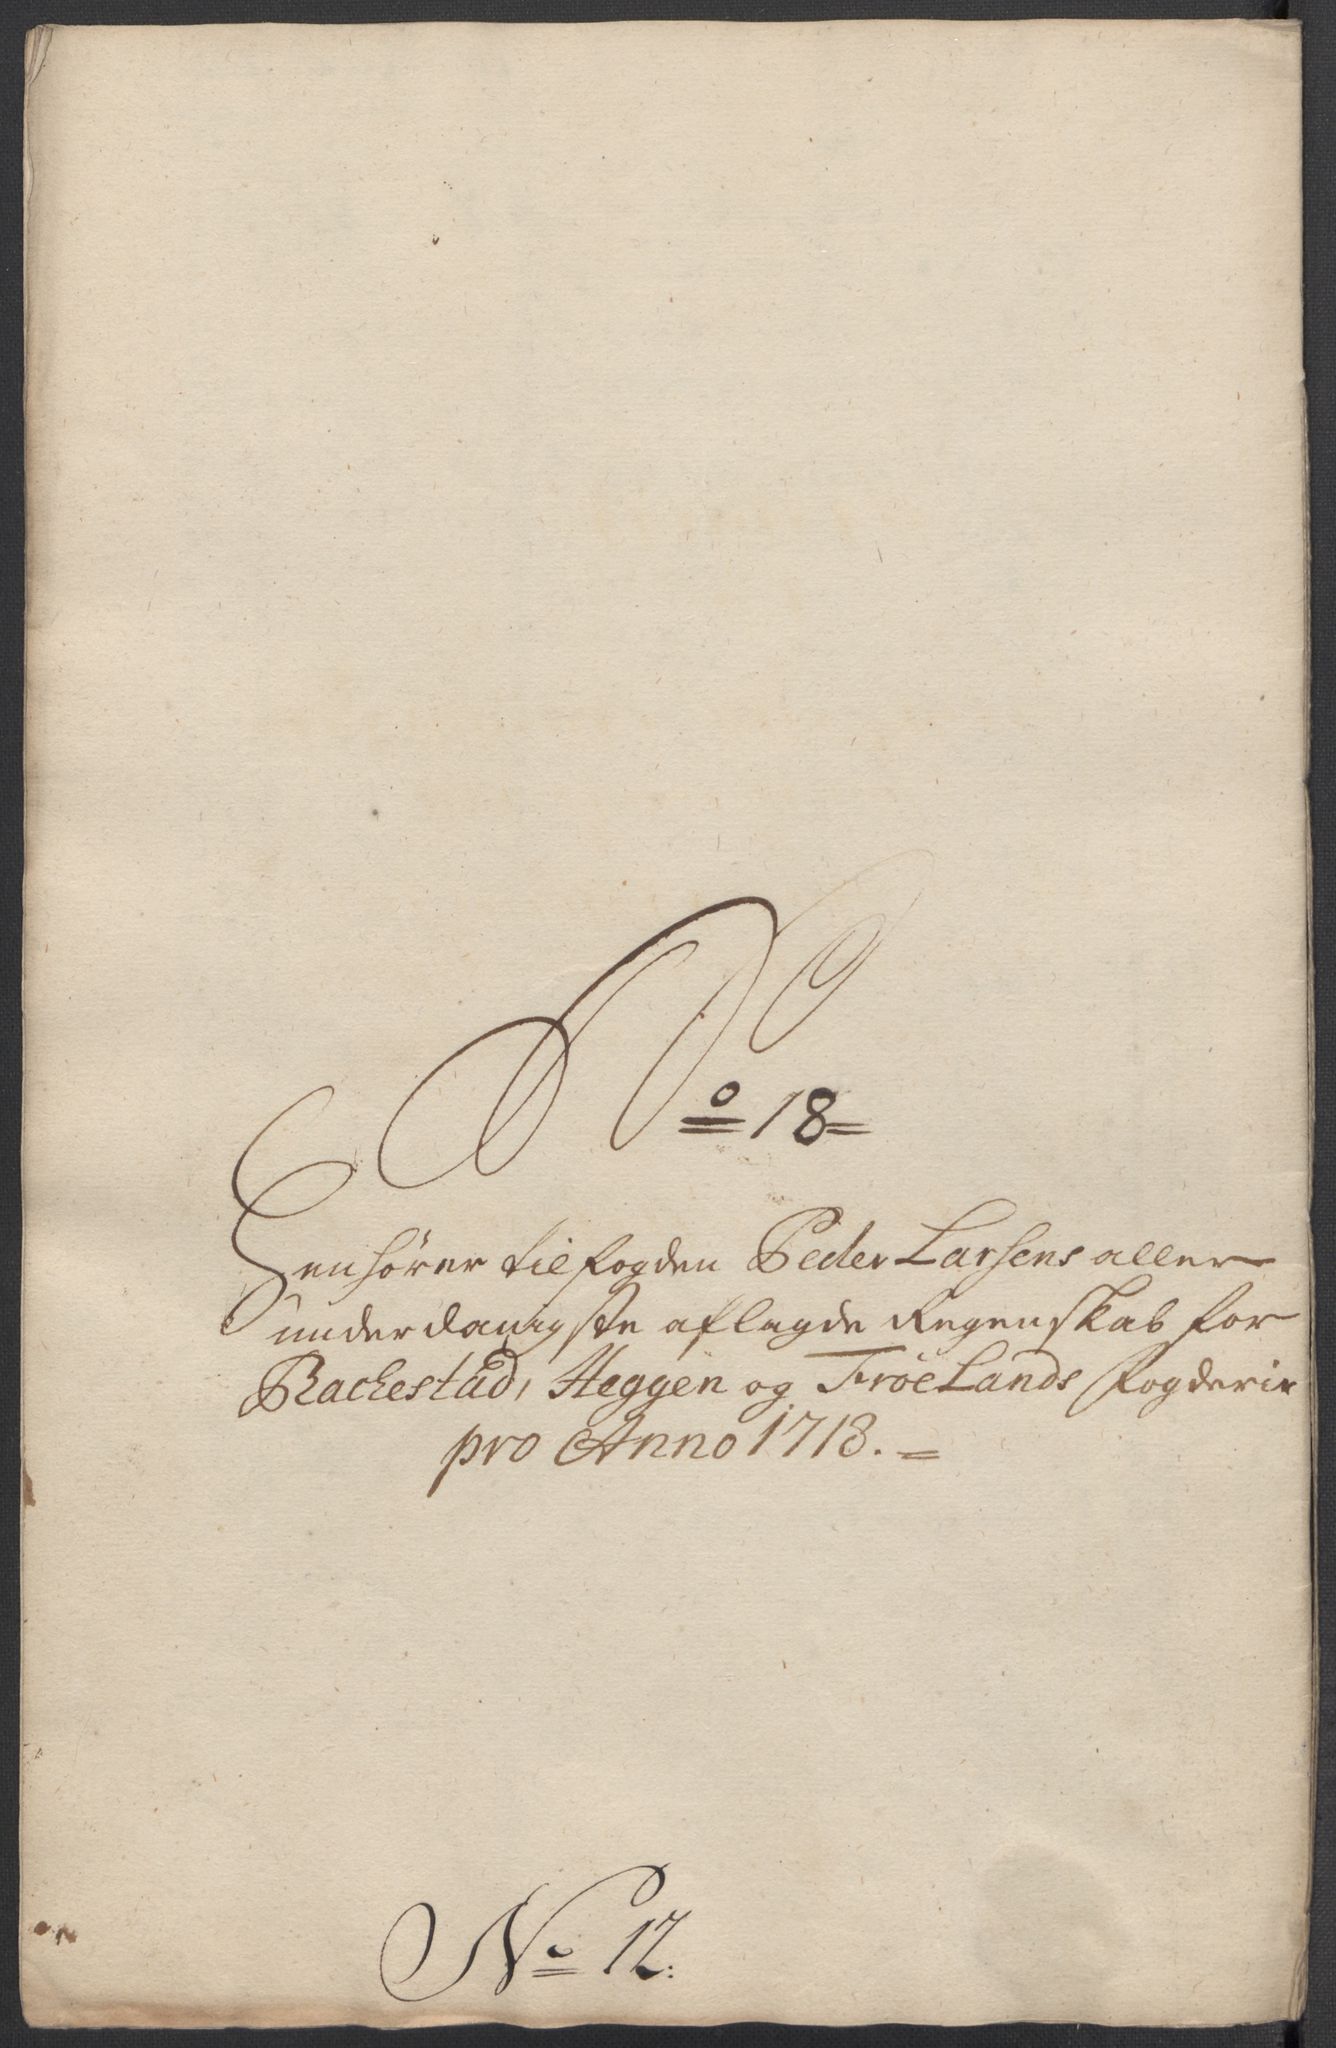 No 18
Henhører til fogden Peder Larsens aller
underdanigste aflagde Regenskab for
Rackestad, Heggen og Frøelands fogderie
pro Anno 1718.
No 12: